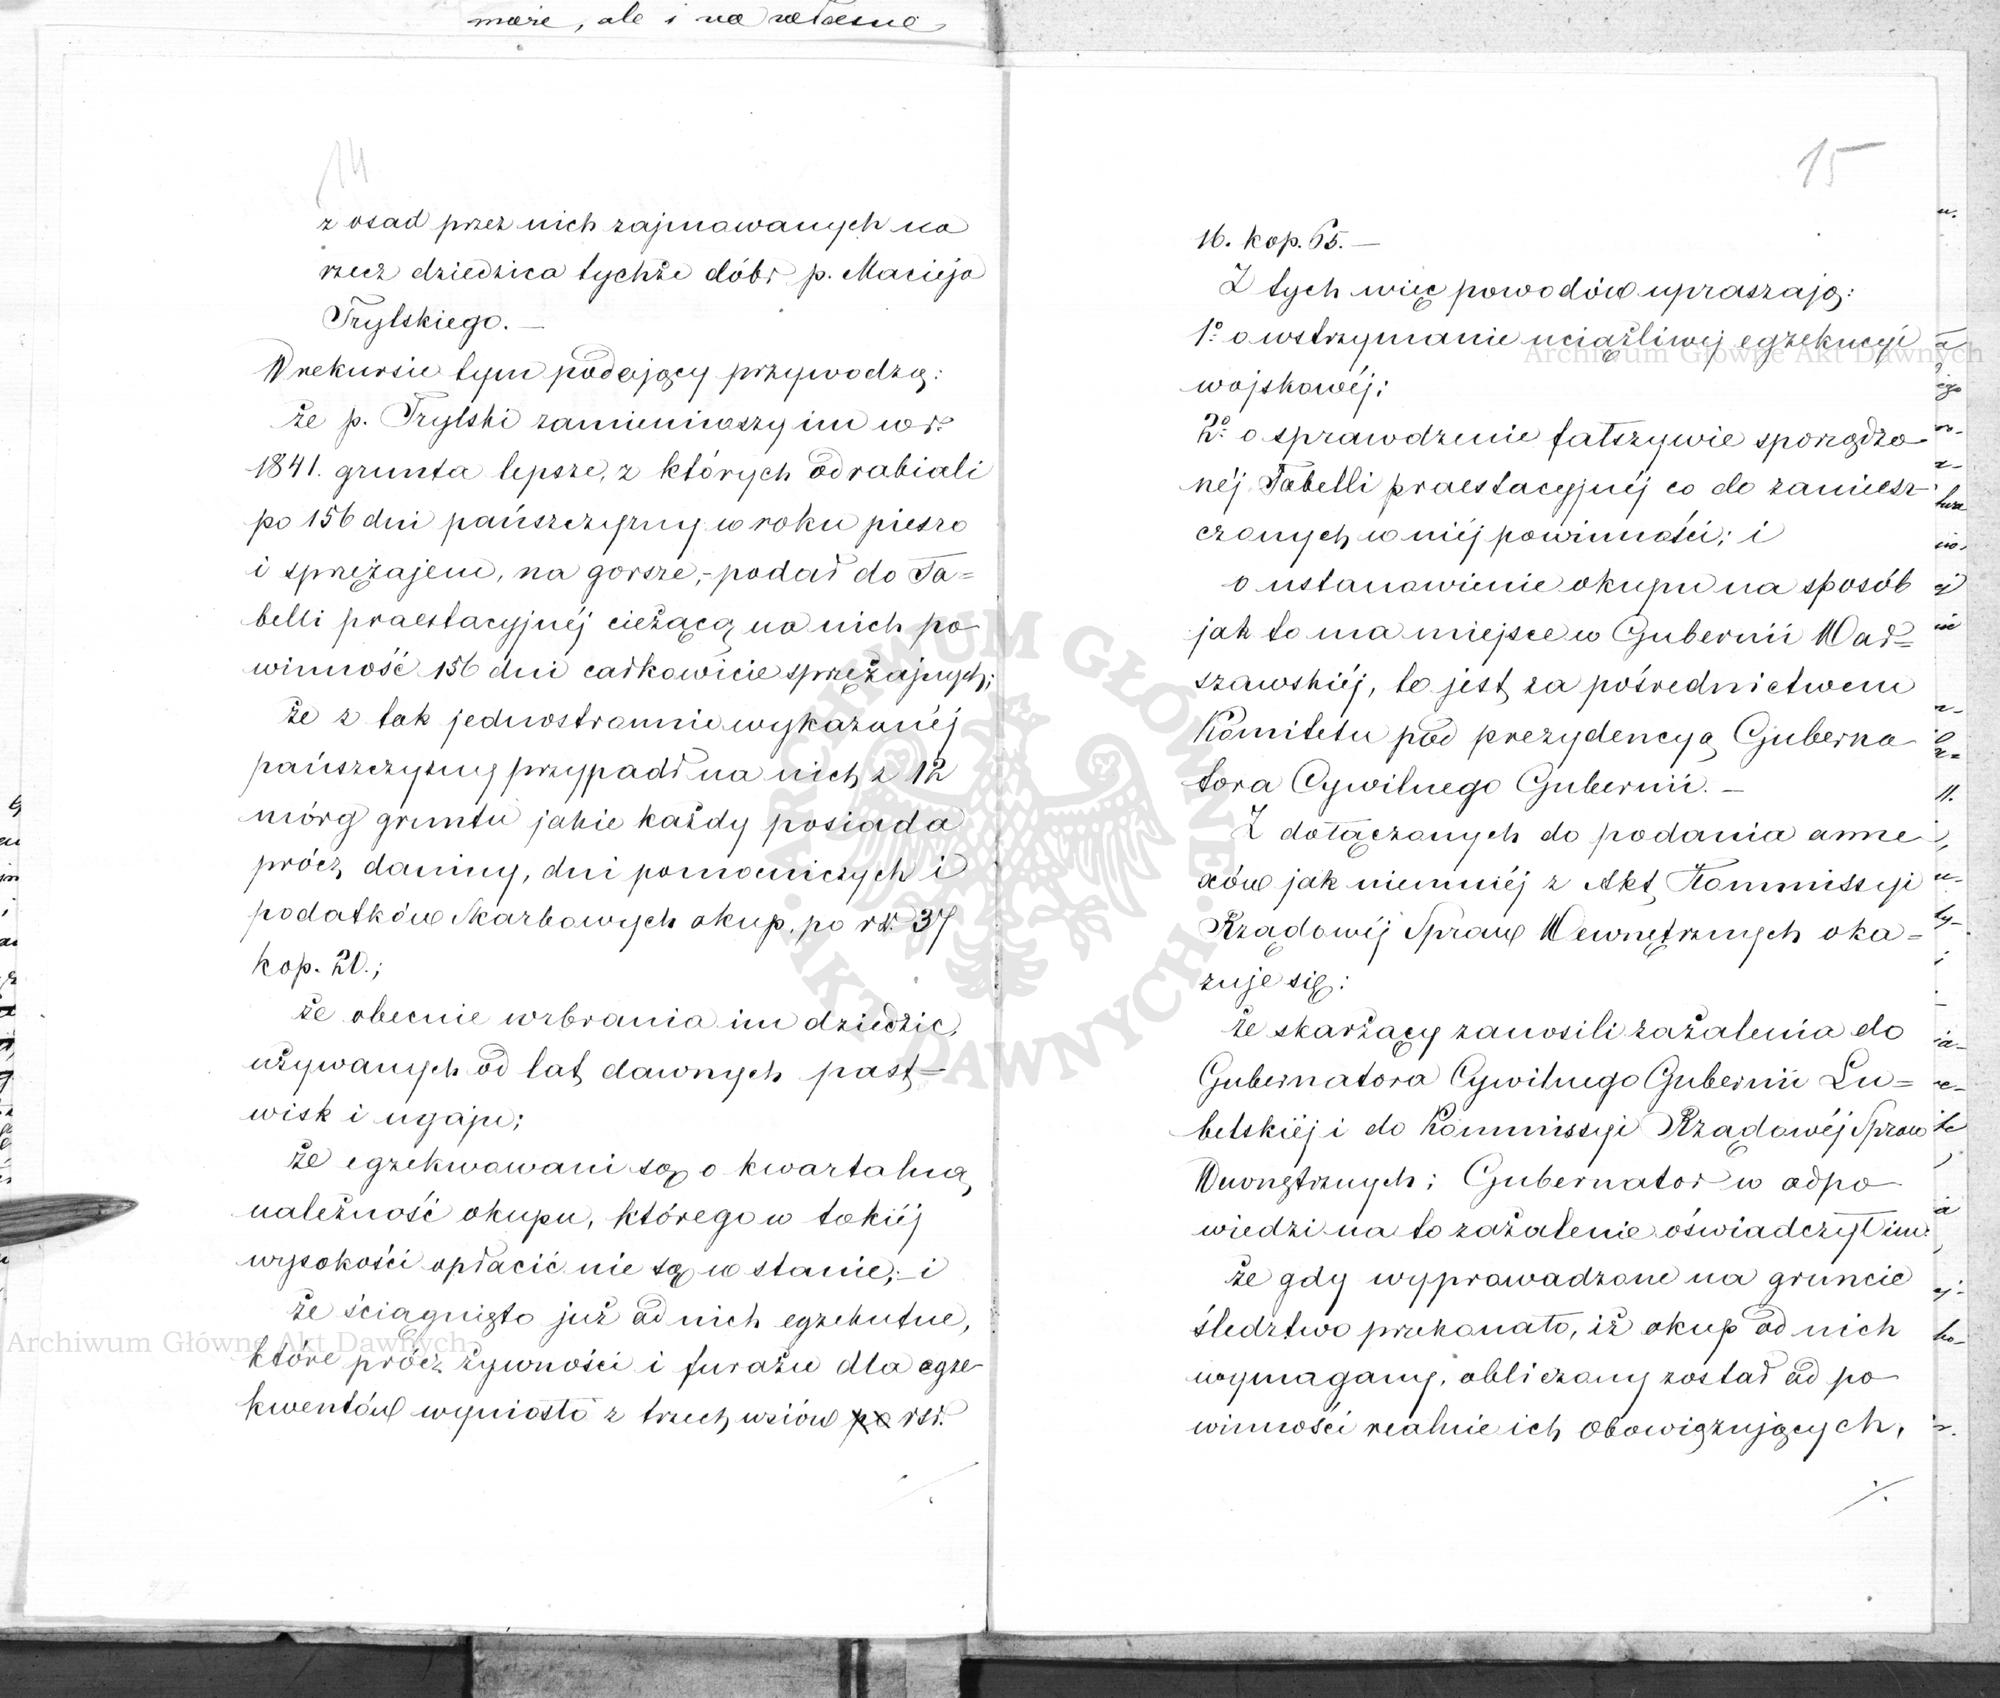 może, ale i na własne
14
z osad przez nich zajmowanych na
rzecz dziedzica tychże dóbr p. Macieja
Trylskiego. —
W rekursie tym podający przywodzą:
że p. Trylski zamieniwszy im w r.
1841. grunta lepsze, z których odrabiali
po 156 dni pańszczyzny w roku pieszo
i sprzężajem, na gorsze, - podał do Ta=
belli praestacyjnéj ciężącą na nich po
winność 156 dni całkowicie sprzężajnych;
że z tak jednostronnie wykazanéj
pańszczyzny przypadł na nich z 12
mórg gruntu jakie każdy posiada
prócz daniny, dni pomocniczych i
podatków Skarbowych okup, po rs. 37
kop. 20.;
że obecnie wzbrania im dziedzic,
używanych od lat dawnych past=
wisk i ugaju;
że egzekwowani są o kwartalną
należność okupu, którego w takiéj
wysokości opłacić nie są w stanie; - i
że ściągnięto już od nich egzekutne,
które prócz żywności i furażu dla egze
kwentów wyniosło z trzech wsiów po rsr.
15
16. kop. 65. —
Z tych więc powodów upraszają:
1º o wstrzymanie uciążliwéj egzekucyi
wojskowéj;
2º o sprawdzenie fałszywie sporządzo
néj Tabelli praestacyjnéj co do zamiesz
czonych w niéj powinności; i
o ustanowienie okupu na sposób
jak to ma miejsce w Gubernii War=
szawskiéj, to jest za pośrednictwem
Komitetu pod prezydencyą Guberna
tora Cywilnego Gubernii. —
Z dołączonych do podania anne
xów jak niemniéj z Akt Kommissyi
Rządowéj Spraw Wewnętrznych oka=
zuje się:
że skarżący zanosili zażalenia do
Gubernatora Cywilnego Gubernii Lu=
belskiéj i do Kommissyi Rządowéj Spraw
Wewnętrznych; Gubernator w odpo
wiedzi na to zażalenie oświadczył im:
że gdy wyprowadzone na gruncie
śledztwo przekonało, iż okup od nich
wymagany, obliczony został od po
winności realnie ich obowiązujących,
./.
Archiwum Główne Akt Dawnych
Archiwum Główne Akt Dawnych
ARCHIWUM GŁÓWNE AKT DAWNYCH